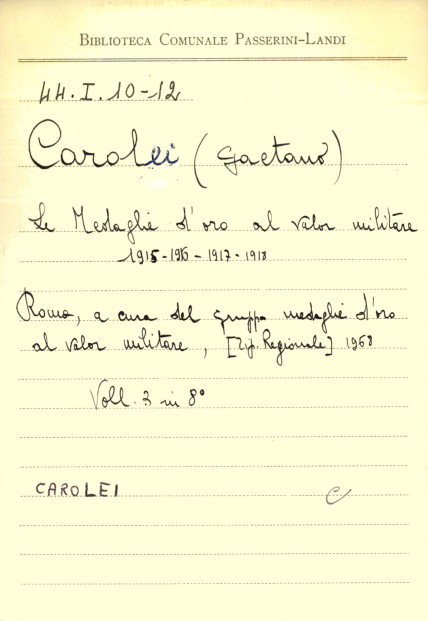 BIBLIOTECA COMUNALE PASSERINI-LANDI
44.I.10-12
Carolei (Gaetano)
Le Medaglie d'oro al valor militare
1915-1916-1917-1918
Roma, a cura del gruppo medaglie d'oro
al valor militare, [Tip. Regionale] 1968
Voll. 3 in 8°
CAROLEI C